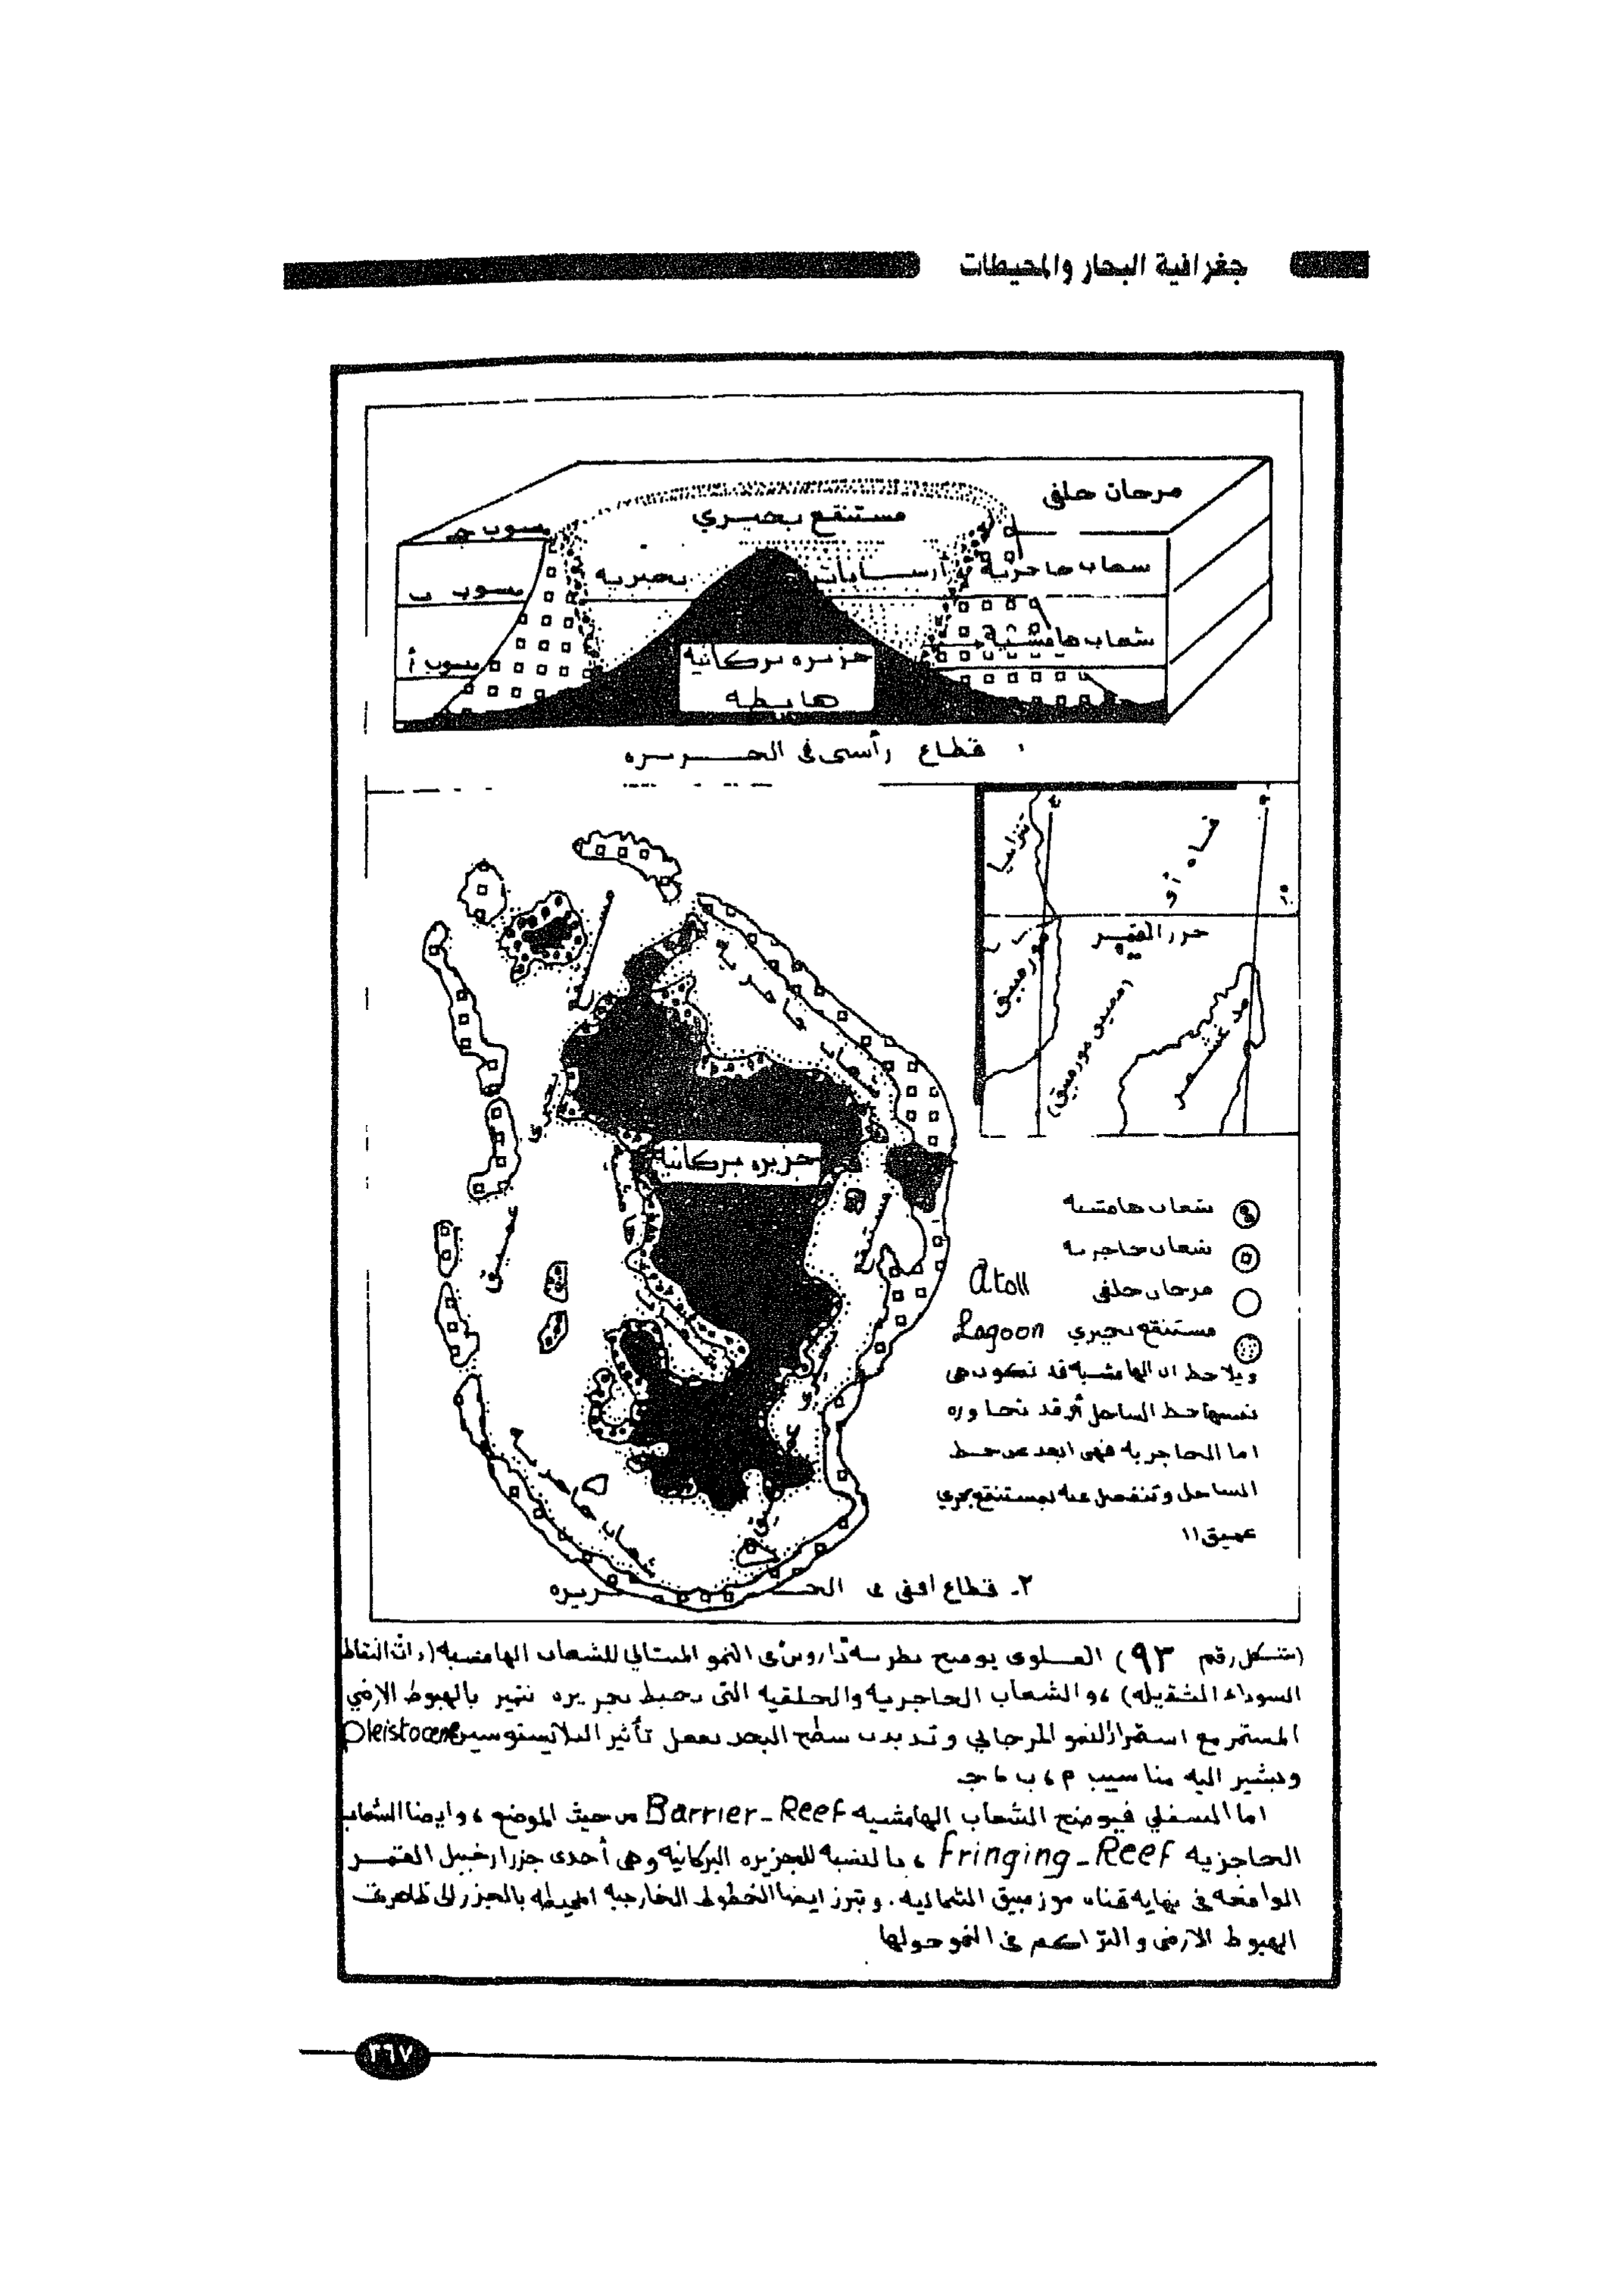 جغرافية البحار والمحيطات
مرجان حلقى
مستنقع بحيري
منسوب جـ
شعاب حاجزية
إرسابات
بحيرية
منسوب ب
شعاب هامشية
منسوب أ
جزيره بركانيه
هابطه
١ قطاع رأسى فى الجـزيره
تنزانيا
جزر القمر
موزمبيق
(مضيق موزمبيق)
مدغشقر
شعاب حاجزية
عميق
جزيره بركانيه
شعاب حاجزية
شعاب هامشيه
شعاب حاجزيه
مرجان حلقى Atoll
مستنقع بحيري Lagoon
ويلاحظ ان الهامشية قد تكون هى
نفسها خط الساحل أو قد تجاوره
اما الحاجزية فهى ابعد عن خط
الساحل وتنفصل عنه بمستنقع بحري
عميق !!
٢ـ قطاع أفقى فى الجـزيره
(شكل رقم ٩٣) العلوى يوضح نظرية داروين فى النمو المتتالي للشعاب الهامشية (ذات النقاط
السوداء الثقيله) ، و الشعاب الحاجزية والحلقيه التى تحيط بجزيره تتميز بالهبوط الارضي
المستمر مع استمرار النمو المرجاني و تذبذب سطح البحر بفعل تأثير البلايستوسين Pleistocene
ويشير اليه مناسيب م ، ب ، جـ
اما السفلي فيوضح الشعاب الهامشيه Barrier-Reef من حيث الموضع ، وايضا الشعاب
الحاجزيه Fringing-Reef ، بالنسبه للجزيره البركانيه وهى أحدى جزر ارخبيل القمـر
الواضحه فى نهايه قناه موزمبيق الشماليه . وتبرز ايضا الخطوط الخارجية المحيطه بالجزر إلى ظاهرتى
الهبوط الارضى والتراكم فى النمو حولها
٣٦٧